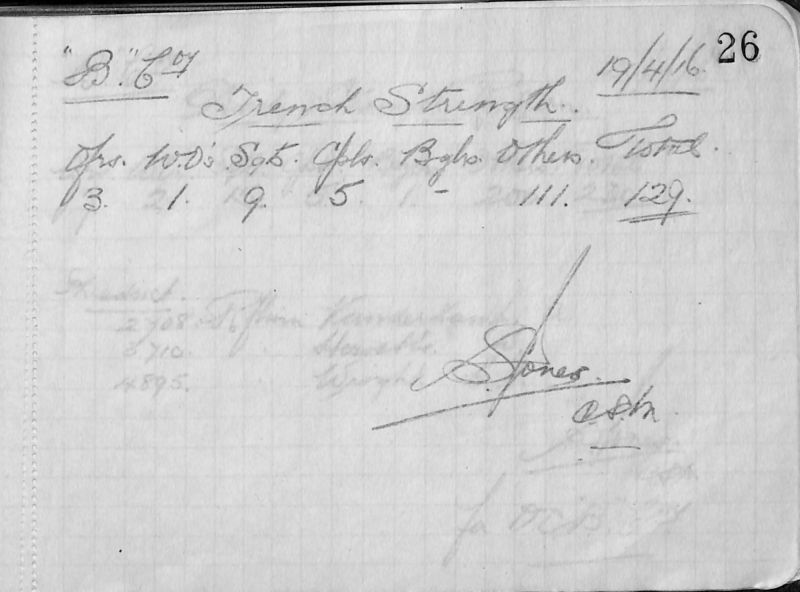 26
"B" Coy 19/4/16.
Trench Strength.
Ofrs. W.O's. Sgts. Cpls. Bglrs. Others. Total.
3. 1. 9. 5 - 111. 129.
2708
3710.
4895.
S. Jones.
C.S.M.